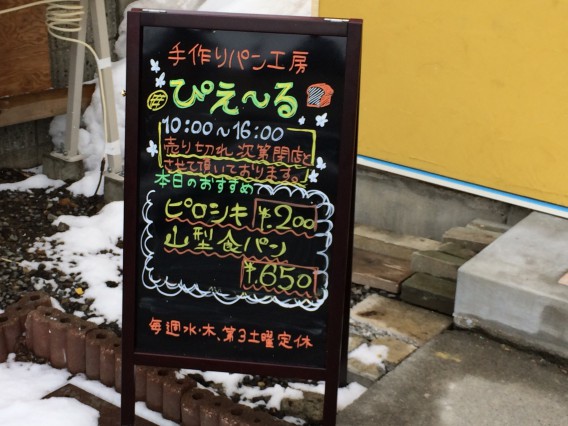 手作りパン工房
ぴえ〜る
10:00〜16:00
売り切れ次第閉店と
させて頂いております。
本日のおすすめ
ピロシキ ¥.200
山型食パン
¥.650
毎週水・木、第3土曜定休